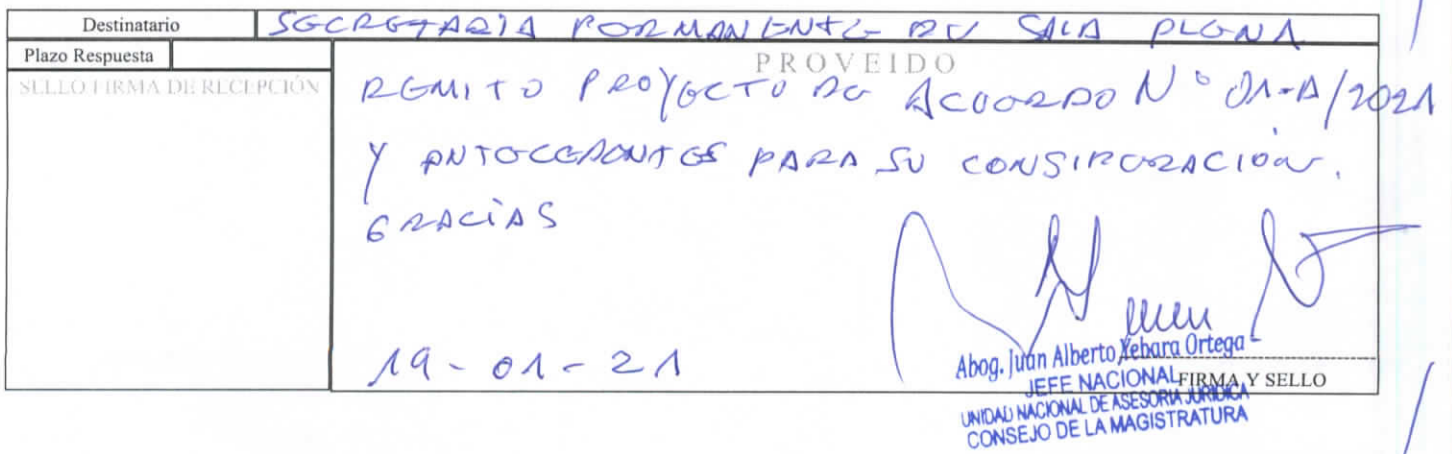 Destinatario SECRETARIA PERMANENTE DE SALA PLENA
Plazo Respuesta
PROVEIDO
SELLO FIRMA DE RECEPCIÓN
REMITO PROYECTO DE ACUERDO Nº 01-A/2021
Y ANTECEDENTES PARA SU CONSIDERACIÓN.
GRACIAS
19-01-21
Abog. Juan Alberto Yebara Ortega
JEFE NACIONAL
FIRMA Y SELLO
UNIDAD NACIONAL DE ASESORIA JURIDICA
CONSEJO DE LA MAGISTRATURA